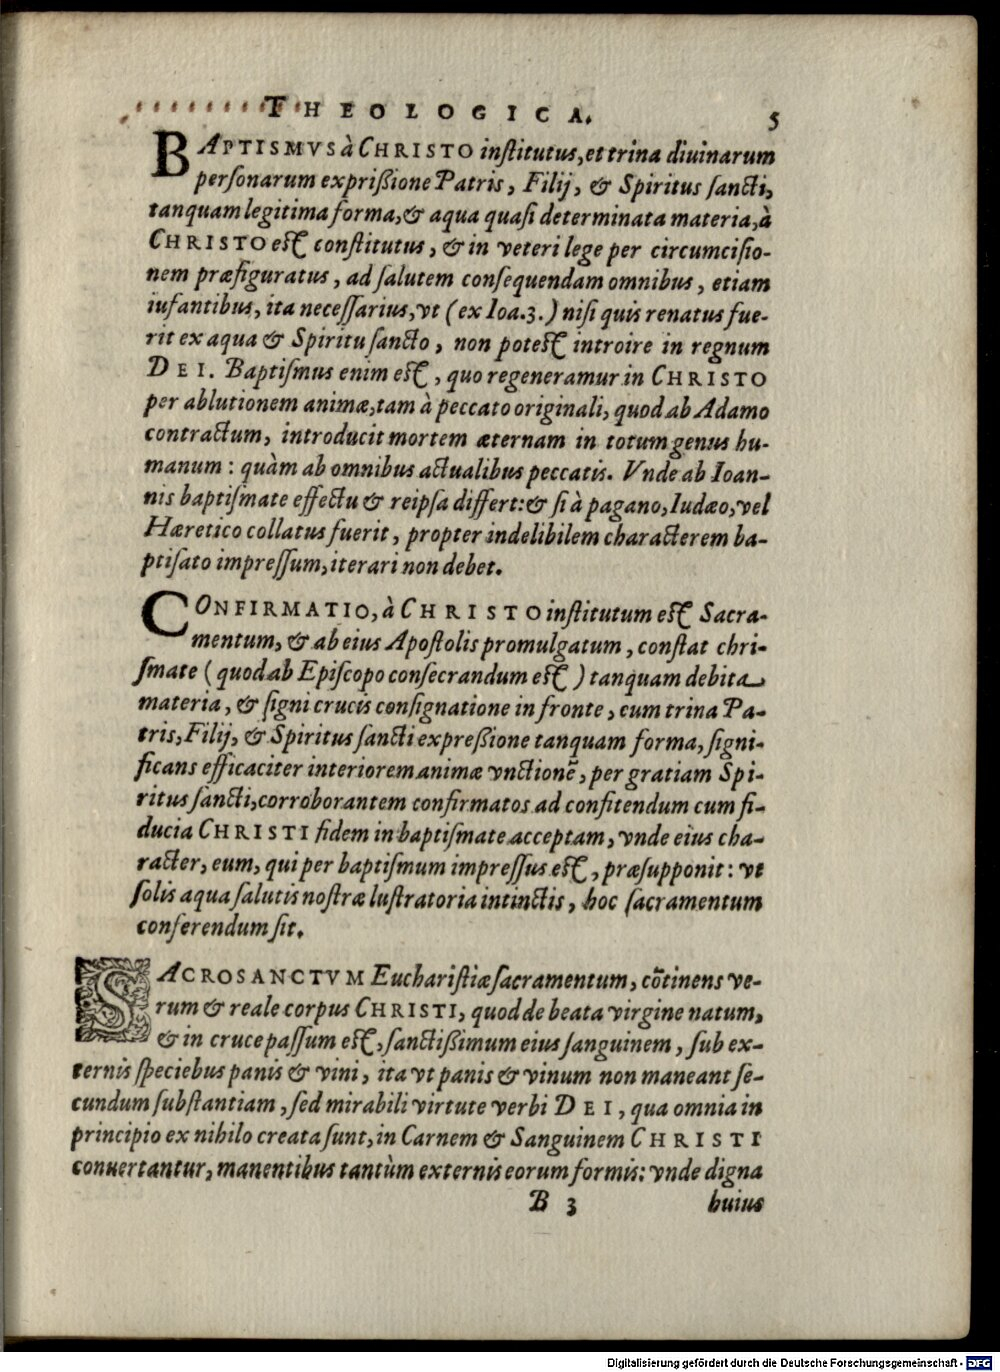 THEOLOGICA. 5
BAPTISMVS à CHRISTO institutus, et trina diuinarum
personarum exprißione Patris, Filij, & Spiritus sancti,
tanquam legitima forma, & aqua quasi determinata materia, à
CHRISTO est constitutus, & in veteri lege per circumcisio-
nem præfiguratus, ad salutem consequendam omnibus, etiam
iufantibus, ita necessarius, vt (ex Ioa.3.) nisi quis renatus fue-
rit ex aqua & Spiritu sancto, non potest introire in regnum
DEI. Baptismus enim est, quo regeneramur in CHRISTO
per ablutionem animæ, tam à peccato originali, quod ab Adamo
contractum, introducit mortem æternam in totum genus hu-
manum: quàm ab omnibus actualibus peccatis. Vnde ab Ioan-
nis baptismate effectu & reipsa differt: & si à pagano, Iudæo, vel
Hæretico collatus fuerit, propter indelibilem characterem ba-
ptisato impressum, iterari non debet.
CONFIRMATIO, à CHRISTO institutum est Sacra-
mentum, & ab eius Apostolis promulgatum, constat chri-
smate (quod ab Episcopo consecrandum est) tanquam debita
materia, & signi crucis consignatione in fronte, cum trina Pa-
tris, Filij, & Spiritus sancti expreßione tanquam forma, signi-
ficans efficaciter interiorem animæ vnctionē, per gratiam Spi-
ritus sancti, corroborantem confirmatos ad confitendum cum fi-
ducia CHRISTI fidem in baptismate acceptam, vnde eius cha-
racter, eum, qui per baptismum impressus est, præsupponit: vt
solis aqua salutis nostræ lustratoria intinctis, hoc sacramentum
conferendum sit.
SACROSANCTVM Eucharistiæ sacramentum, cōtinens ve-
rum & reale corpus CHRISTI, quod de beata virgine natum,
& in cruce passum est, sanctißimum eius sanguinem, sub ex-
ternis speciebus panis & vini, ita vt panis & vinum non maneant se-
cundum substantiam, sed mirabili virtute verbi DEI, qua omnia in
principio ex nihilo creata sunt, in Carnem & Sanguinem CHRISTI
conuertantur, manentibus tantùm externis eorum formis: vnde digna
B 3 huius
Digitalisierung gefördert durch die Deutsche Forschungsgemeinschaft - DFG